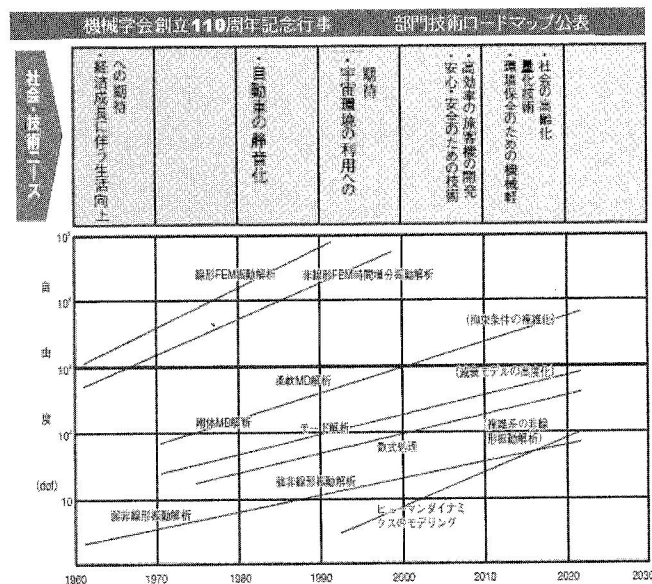 機械学会創立110周年記念行事 部門技術ロードマップ公表
社会・技術ニーズ
・経済成長に伴う生活向上
への期待
・自動車の静音化
・宇宙環境の利用への
期待
・高効率の旅客機の開発
・安心・安全のための技術
・社会の高齢化
・環境保全のための機械軽
量化技術
自
由
度
(dof)
10
線形FEM振動解析
非線形FEM時間増分振動解析
(拘束条件の複雑化)
柔軟MD解析
(減衰モデルの高度化)
剛体MB解析
モード解析
数式処理
(複雑系の非線
形振動解析)
強非線形振動解析
弱非線形振動解析
ヒューマンダイナミ
クスのモデリング
1960 1970 1980 1990 2000 2010 2020 2030